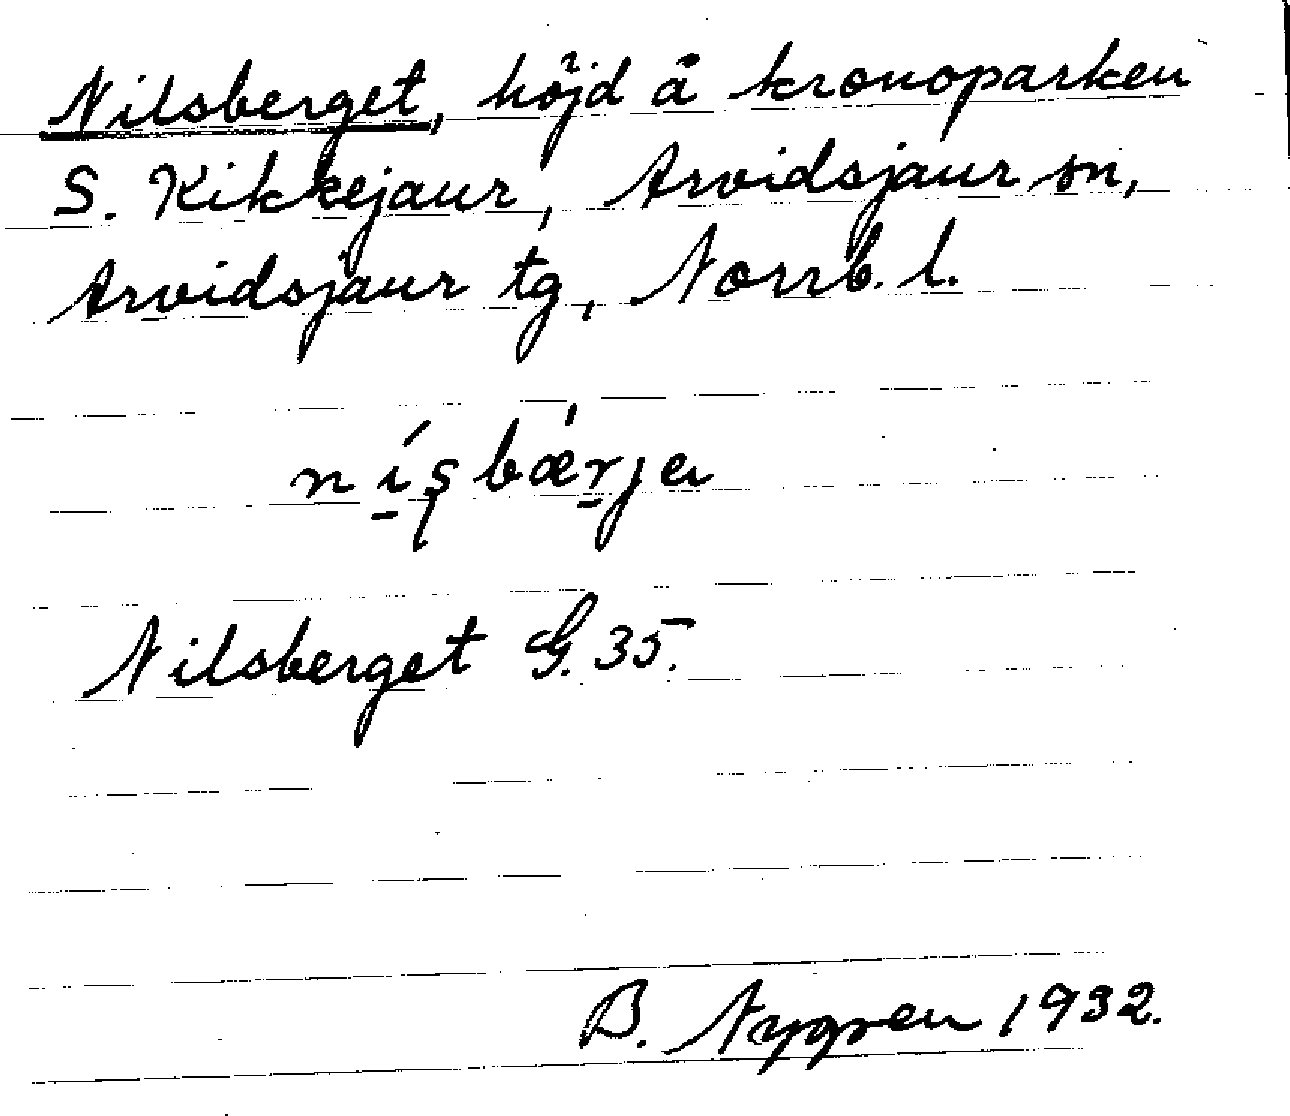 Nilsberget, höjd å kronoparken
S. Kikkejaur, Arvidsjaur sn,
Arvidsjaur tg, Norrb. l.
ní̱ʂbæ̀ṟjə
Nilsberget G. 35.
B. Nygren 1932.